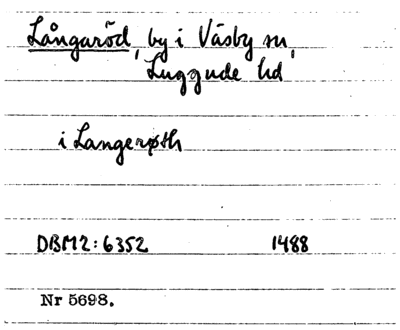 Långaröd, by i Väsby sn,
Luggude hd
i Langerøth
DBM2:6352 1488
Nr 5698.